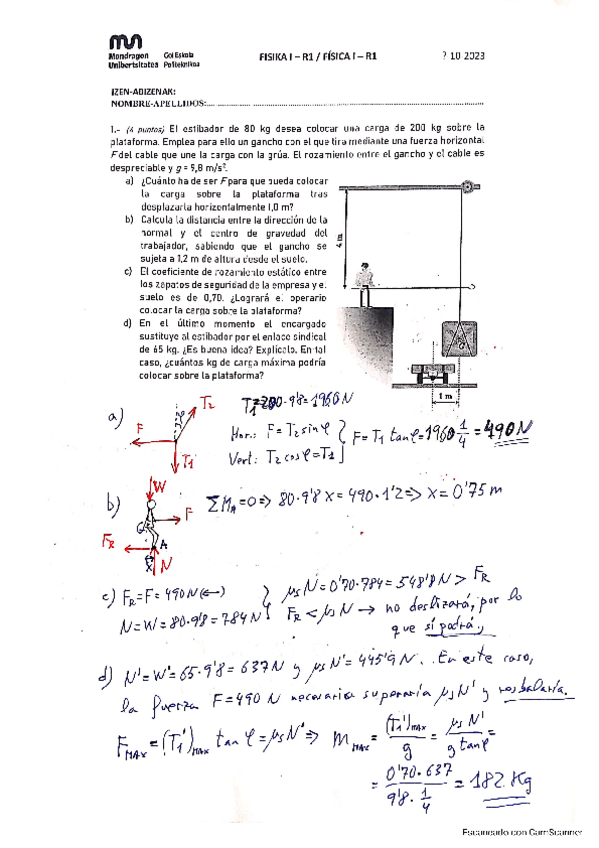 mn
Mondragon Goi Eskola
Unibertsitatea Politeknikoa
FISIKA I – R1 / FÍSICA I – R1
?-10-2023
IZEN-ABIZENAK:
NOMBRE-APELLIDOS:
1.- (4 puntos) El estibador de 80 kg desea colocar una carga de 200 kg sobre la
plataforma. Emplea para ello un gancho con el que tira mediante una fuerza horizontal
F del cable que une la carga con la grúa. El rozamiento entre el gancho y el cable es
despreciable y g = 9,8 m/s².
a) ¿Cuánto ha de ser F para que pueda colocar
la carga sobre la plataforma tras
desplazarla horizontalmente 1,0 m?
b) Calcula la distancia entre la dirección de la
normal y el centro de gravedad del
trabajador, sabiendo que el gancho se
sujeta a 1,2 m de altura desde el suelo.
c) El coeficiente de rozamiento estático entre
los zapatos de seguridad de la empresa y el
suelo es de 0,70. ¿Logrará el operario
colocar la carga sobre la plataforma?
d) En el último momento el encargado
sustituye al estibador por el enlace sindical
de 65 kg. ¿Es buena idea? Explícalo. En tal
caso, ¿cuántos kg de carga máxima podría
colocar sobre la plataforma?
4 m
1 m
a) F φ T2 T1
T1=200·9'8=1960N
Hor.: F=T2 sin φ
Vert: T2 cos φ=T1
F=T1 tan φ=1960·1/4=490N
b) W F G FR A x N
ΣMA=0=> 80·9'8 x = 490·1'2 => x=0'75 m
c) FR=F=490N(<->)
N=W=80·9'8=784N
μsN=0'70·784=548'8N > FR
FR<μsN → no deslizará, por lo
que sí podrá,
d) N'=W'=65·9'8=637N y μsN'=445'9N. En este caso,
la fuerza F=490 N necesaria superaría μsN' y resbalaría.
FMAX=(T1')MAX tan φ=μsN'=> mMAX=(T1')MAX/g=μsN'/(g tan φ)=
=0'70·637/(9'8·1/4)=182 Kg
Escaneado con CamScanner